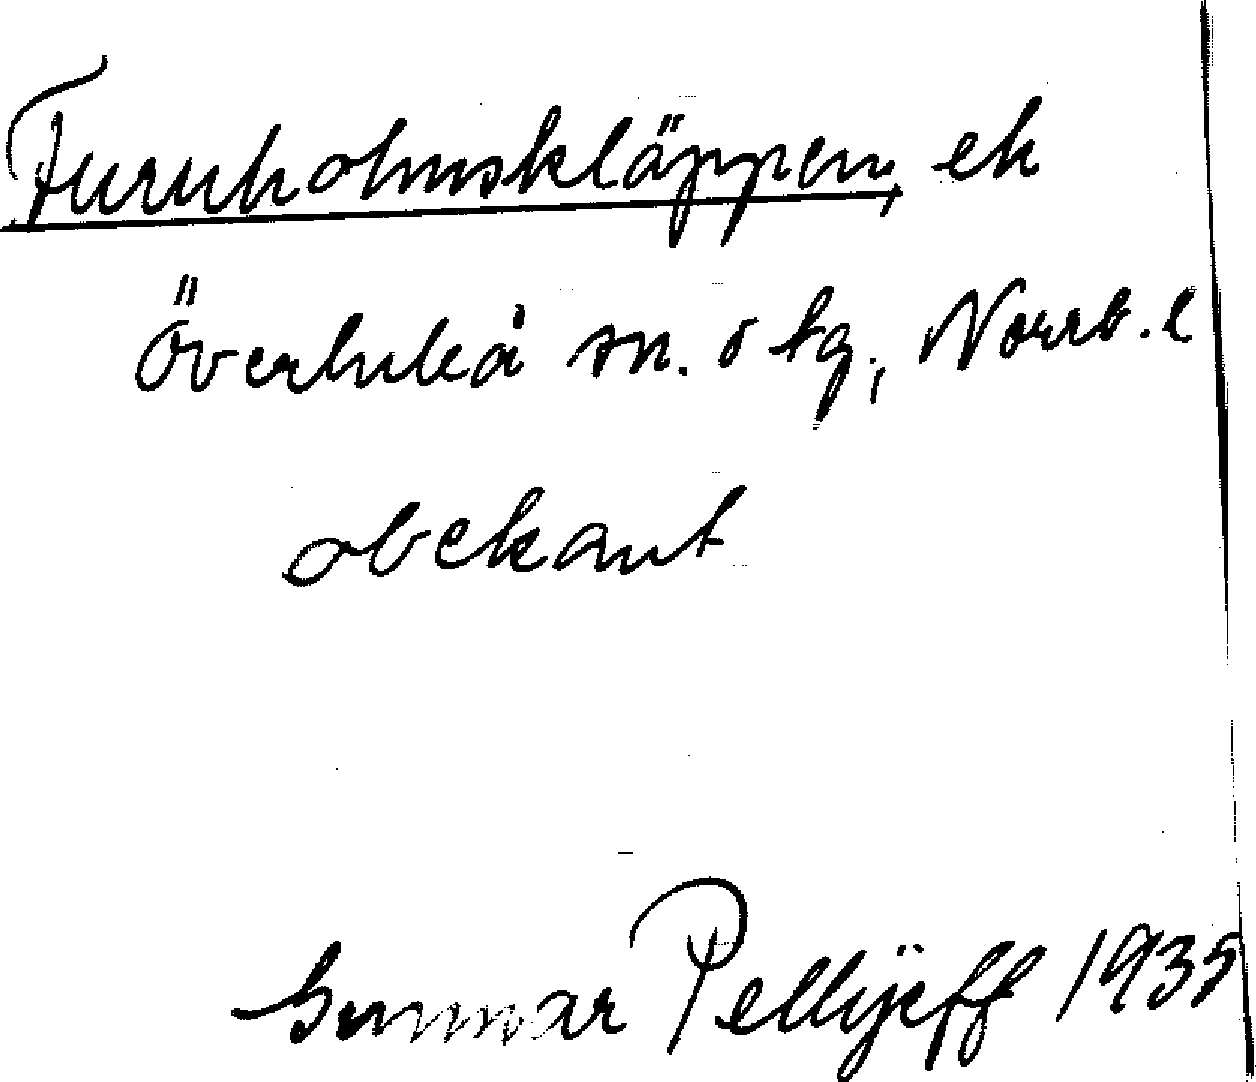 Furuholmskläppen, ek
Överluleå sn. o tg., Norrb. l
obekant
Gunnar Pellijeff 1935